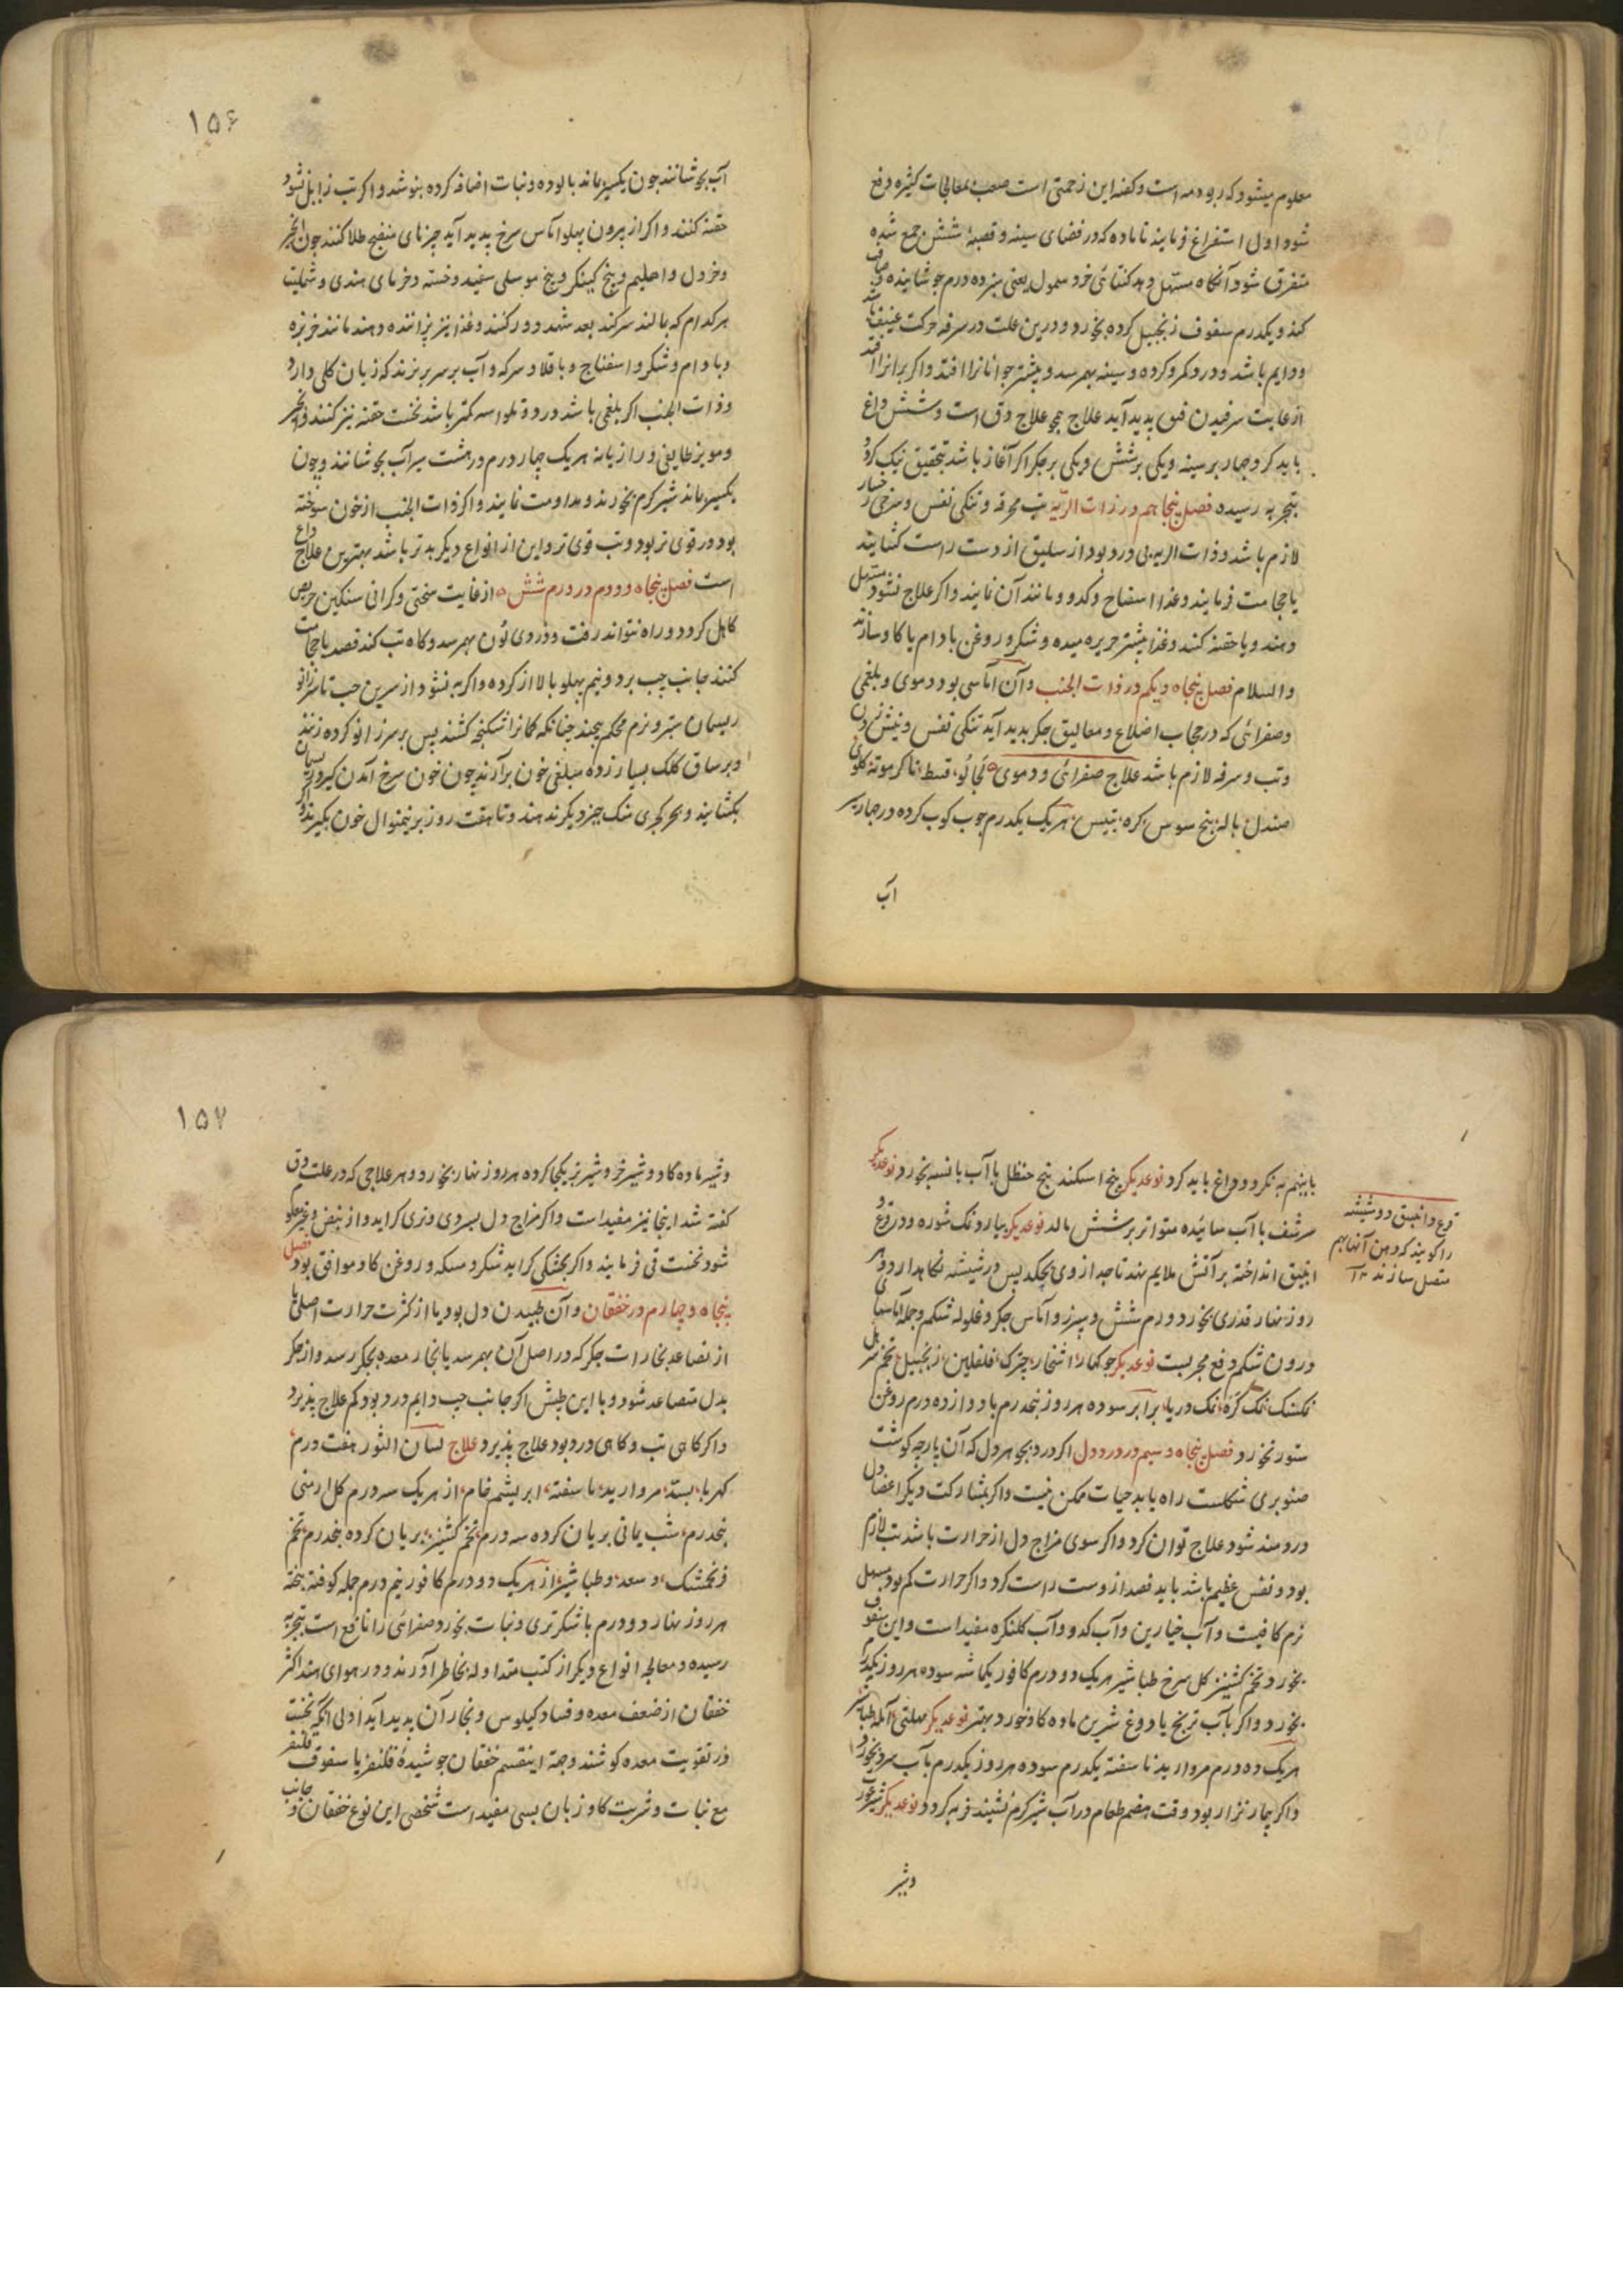 معلوم میشود که ربو دمه است و کفته این زحمتی است صعب بمعالجات کثیره دفع
شود اول استفراغ فرمایند تا ماده که در فضای سینه و قصبهٔ شش جمع شده
متفرق شود آنکاه مستهل دهد کتائی خرد سمول یعنی سیزده درم جوشانیده صاف
کند و یکدرم سفوف زنجبیل کرده بخورد و درین علت در سرفه حرکت عنیف باشد
و دایم باشد و درد کمر و کرده و سینه بهم رسد و بیشتر جوانانرا افتد و اکر پیرانرا افتد
از غایت سرفیدن فتق پدید آید علاج همچو علاج دق است و شش داغ
باید کرد چهار بر سینه و یکی بر شش و یکی بر جکر اکر آغاز باشد بتحقیق نیک کردد
بتجربه رسیده فصل پنجاهم در ذات الریه تب محرقه و تنکی نفس و سرخی رخسار
لازم باشد و ذات الریه بی درد بود از سلیق از دست راست کشایند
یا حجامت فرمایند و غذا اسفناج و کدو و مانند آن نمایند و اکر علاج نشود مستهل
دهند و یا حقنه کنند و غذا بیشتر حریره میده و شکر و روغن بادام یا کاو سازند
والسلام فصل پنجاه و یکم در ذات الجنب و آن آماسی بود دموی و بلغمی
و صفرائی که در حجاب اضلاع و معالیق جکر پدید آید تنکی نفس و نیش زدن
و تب و سرفه لازم باشد علاج صفرائی و دموی قسط ناکرموته کلوی
صندل باله بیخ سوس کره تیس هر یک یکدرم جوب کوب کرده در چهار سیر
آب
۱۵۶
آب بجوشانند چون یکسیر ماند پالوده و نبات اضافه کرده بنوشد و اکر تب زایل نشود
حقنه کنند و اکر از بیرون پهلو آماس سرخ پدید آید چیزهای منضج طلا کنند چون انجیر
و خردل و اهلیم و بیخ کینکر و بیخ موسلی سفید و خسته خرمای هندی و شملیت
هر کدام که بمالند سر کند بعد شهد دور کنند و غذا بنز پزانند و هند مانند خربزه
و بادام و شکر و اسفناج و باقلا و سرکه و آب بر سر بریزند که زیان کلی دارد
و ذات الجنب اکر بلغمی باشد درد و تلواسه کمتر باشد نخست حقنه نیز کنند و انجیر
و مویز طایفی و رازیانه هر یک چهار درم در هشت سیر آب بجوشانند و چون
یکسیر ماند شیر کرم بخورند و مداومت نمایند و اکر ذات الجنب از خون سوخته
بود درد قوی تر بود و تب قوی تر و این از انواع دیکر بدتر باشد بهترین علاج داغ
است فصل پنجاه و دوم در ورم شش از غایت سختی و کرانی سنکین حریص
کاهل کردد و راه نتواند رفت و زردی لون بهم رسد و کاه تب کند فصد یا حجامت
کنند جانب چپ بر دو نیم پهلو بالا از کرده و اکر به نشود از سرین چپ تا سر زانو
ریسمان ستبر و نرم محکم پیچند چنانکه کمانرا شکنجه کشند پس بر سر زانو کرده زنند
و بر ساق کلک بسیار زده مبلغی خون برآرند چون خون سرخ آمدن کیرد ریسمان
بکشایند و بجز کهجری منک چیز دیکر ندهند و تا هفت روز برینمنوال خون بکیرند و
یا بنیم به نکردد داغ باید کرد نوعدیکر بیخ اسکند بیخ حنظل با آب بانسه بخورد نوعدیکر
سرشف با آب سائیده متواتر بر شش مالد نوعدیکر بیارد نمک شوره و در قرع و
انبیق انداخته بر آتش ملایم نهد تا چه از وی بچکد پس در شیشه نکاهدارد و هر
روز نهار قدری بخورد ورم شش و سپرز و آماس جکر و غلوله شکم و جمله آماسهای
درون شکم دفع مجربست نوعدیکر جوکهار اشخار چترک فلفلین زنجبیل تخم
نمک کره نمک دریا برابر سوده هر روز پنجدرم با دوازده درم روغن
ستور بخورد فصل پنجاه و سیم در درد دل اکر درد بجوهر دل که آن پارچه کوشت
صنوبری شکلست راه یابد حیات ممکن نیست و اکر بمشارکت دیکر اعضا دل
دردمند شود علاج توان کرد و اکر سوی مزاج دل از حرارت باشد تب لازم
بود و نفس عظیم باشد باید فصد از دست راست کرد و اکر حرارت کم بود مسهل
نرم کافیست و آب خیارین و آب کدو و آب کلنکره مفید است و این سفوف
بخورد تخم کشنیز کل سرخ طباشیر هر یک دو درم کافور یکماشه سوده هر روز یکدرم
بخورد و اکر بآب ترنج یا دوغ شیرین ماده کاو خورد بهتر نوعدیکر مهلتی آمله طباشیر
هر یک ده درم مروارید ناسفته یکدرم سوده هر روز یکدرم بآب سرد بخورد
و اکر بیمار نزار بود وقت هضم طعام در آب شیر کرم نشیند فربه کردد نوعدیکر شیر
و شیر
قرع و انبیق دو شیشه
را کویند که دهن آنها بهم
متصل سازند ۱۲
۱۵۷
و شیر ماده کاو و شیر خر و شیر بز یکجا کرده هر روز نهار بخورد و هر علاجی که در علت دق
کفته شد اینجا نیز مفید است و اکر مزاج دل بسردی و تری کراید و از نبض و غیره معلوم
شود نخست قی فرمایند و اکر بخشکی کراید شکر و مسکه و روغن کاو موافق بود فصل
پنجاه و چهارم در خفقان و آن طپیدن دل بود یا از کثرت حرارت اصلی یا
از تصاعد بخارات جکر که در اصل آن بهم رسد یا بخار معده بجکر رسد و از جکر
بدل متصاعد شود و با این طپش اکر جانب چپ دایم درد بود کم علاج پذیرد
و اکر کاهی تب و کاهی درد بود علاج پذیرد علاج لسان الثور هفت درم
کهربا بسد مروارید ناسفته ابریشم خام از هریک سه درم کل ارمنی
پنجدرم شب یمانی بریان کرده سه درم تخم کشنیز بریان کرده پنجدرم تخم
فرنجمشک و سعد و طباشیر از هریک دو درم کافور نیم درم جمله کوفته بیخته
هر روز نهار دو درم با شکر تری و نبات بخورد صفرائی را نافع است بتجربه
رسیده و معالجه انواع دیکر از کتب متداوله بخاطر آورند و در هوای هند اکثر
خفقان از ضعف معده و فساد کیلوس و بخار آن پدید آید اولی انکه نخست
در تقویت معده کوشند و جهة اینقسم خفقان جوشیدهٔ قلنفر یا سفوف قلنفر
مع نبات و شربت کاوزبان بسی مفید است شخصی این نوع خفقان و جانب